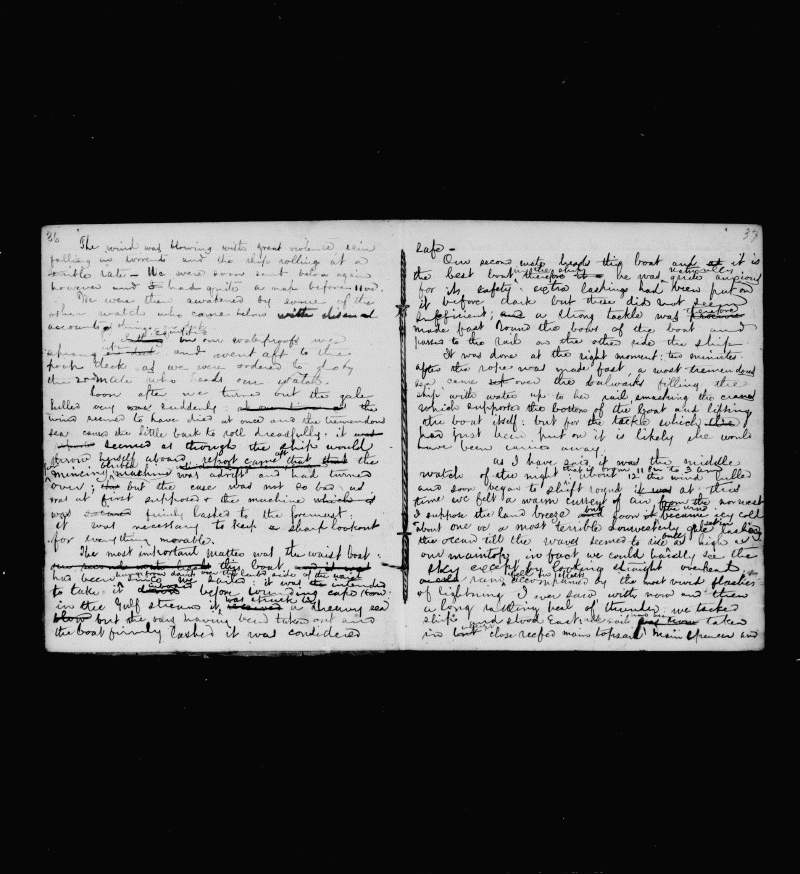 36
The wind was blowing with great violence rain
falling in torrents and the ship rolling at a
terrible rate – We were soon sent below again
however and I had quite a nap before 11 oc.
We were then awakened by some of the
other watch who came below with dismal
accounts of things
on our waterproofs we
sprang and went aft to the
poop deck as we were ordered to obey
the 2nd mate who heads our watch.
Soon after we turned out the gale
lulled very suddenly; the
wind seemed to have died at once and the tremendous
sea caused the little bark to roll dreadfully. it
seemed as though the ship would
throw herself aboard, report came aft that the
mincing machine was adrift and had turned
over; but the case was not so bad, as
was at first supposed & the machine which is
was firmly lashed to the foremast;
it was necessary to keep a sharp lookout
for everything movable.
The most important matter was the waist boat:
our second mate heads this boat, and it was
had been the larboard side of the waist
to take it aboard before rounding cape
in the Gulf stream it was struck by a heavy sea
blow but the oars having been taken out and
the boat firmly lashed it was considered
37
safe –
Our second mate heads this boat and as it is
the best boat in the ship therefore it he was naturally quite anxious
for its safety. extra lashings had been put on
it before dark but these did not seem
sufficient; and a strong tackle was therefore
made fast round the bows of the boat and
passed to the rail on the other side the ship
It was done at the right moment: ten minutes
after the rope was made fast, a most tremendous
sea came over the bulwarks filling the
ship with water up to her rail, smashing the crane
which supports the bottom of the boat and lifting
the boat itself: but for the tackle which
had just been put on it is likely she would
have been carried away.
as I have said it was the middle
watch of the night that is from 11 P.M. to 3 A.M.
about 12 the wind lulled
and soon began to shift round at this
time we felt a warm current of air from the norwest
I suppose the land breeze but soon it became icy cold
about one oc a most terrible norwesterly gale set in lashing
the ocean till the waves seemed to rise as high as
our maintop, in fact, we could hardly see the
sky except by looking straight overhead
rain fell in torrents accompanied by the most vivid flashes
of lightning I ever saw with now and then
a long rattling peal of thunder. we tacked
ship and stood East sail was taken
in but close reefed main topsail main spencer and